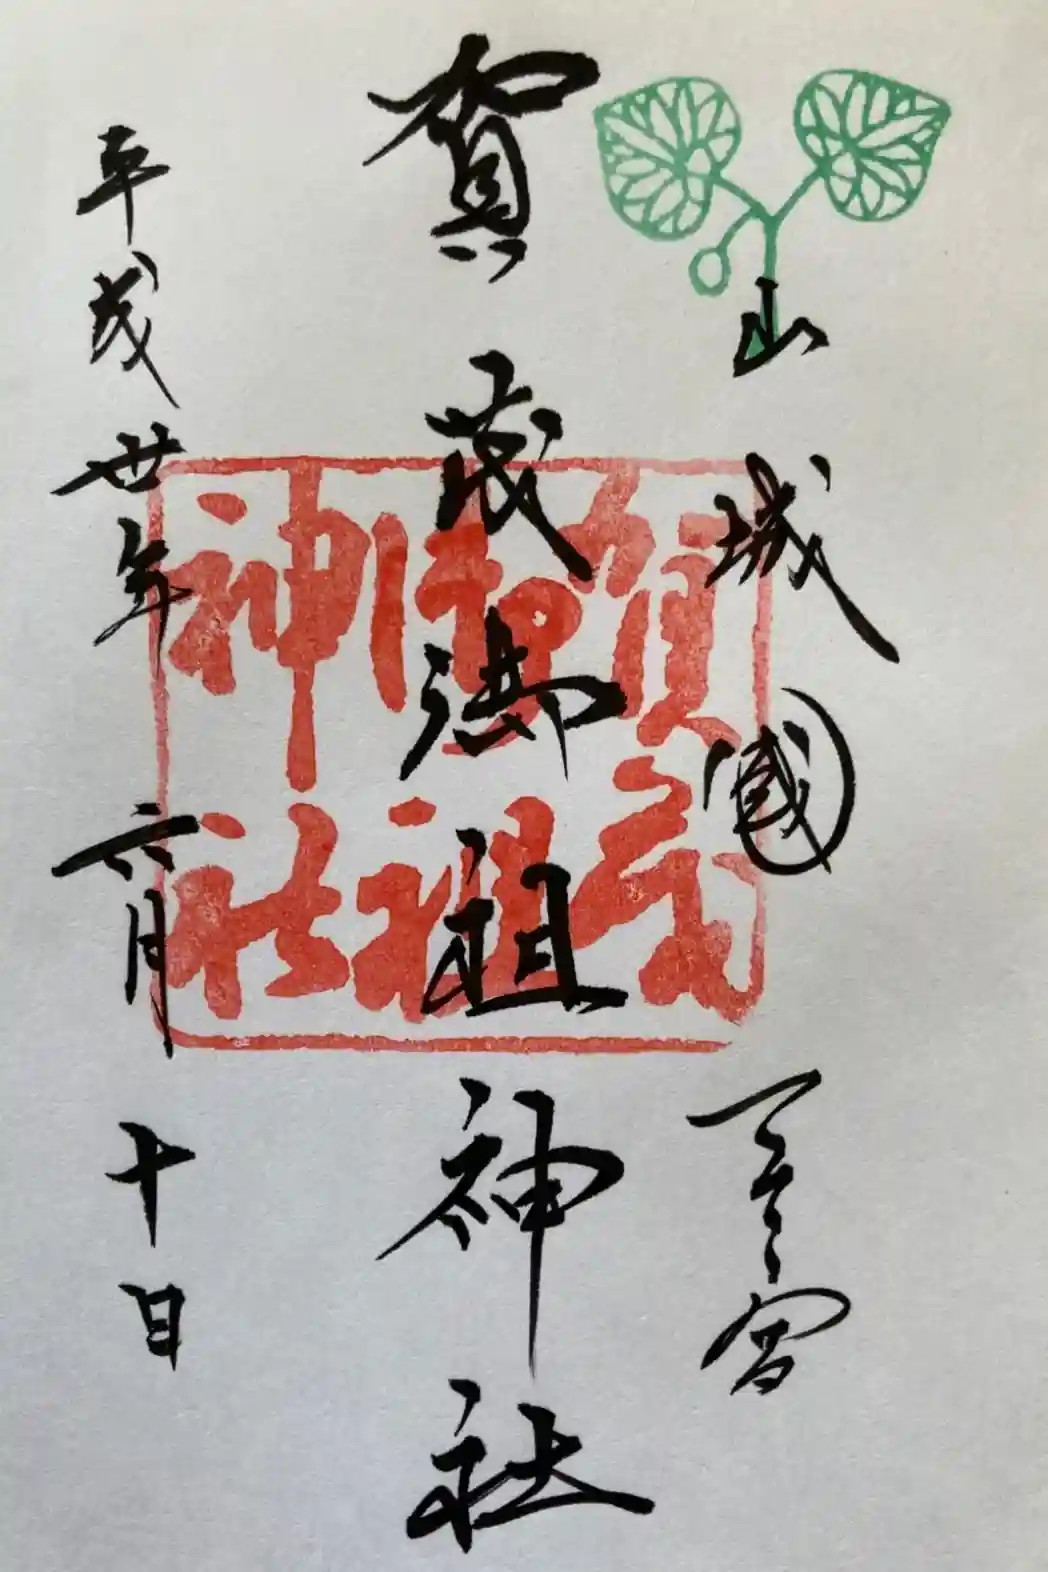 山城國一宮
賀茂御祖神社
平成廿年六月十日
賀茂
御祖
神社